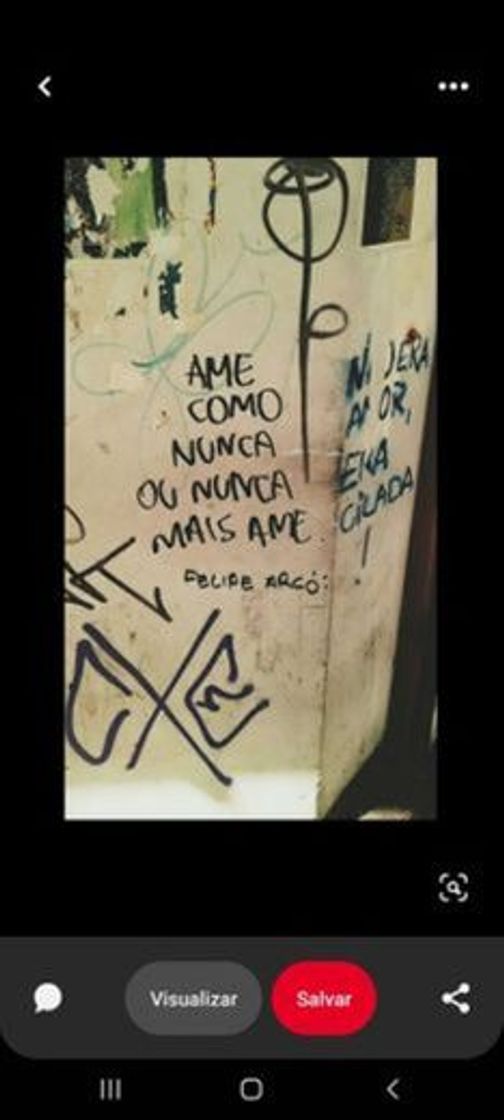 AME
COMO
NUNCA
OU NUNCA
MAIS AME.
FELIPE ARCÓ:
ERA
CILADA
!
Visualizar
Salvar